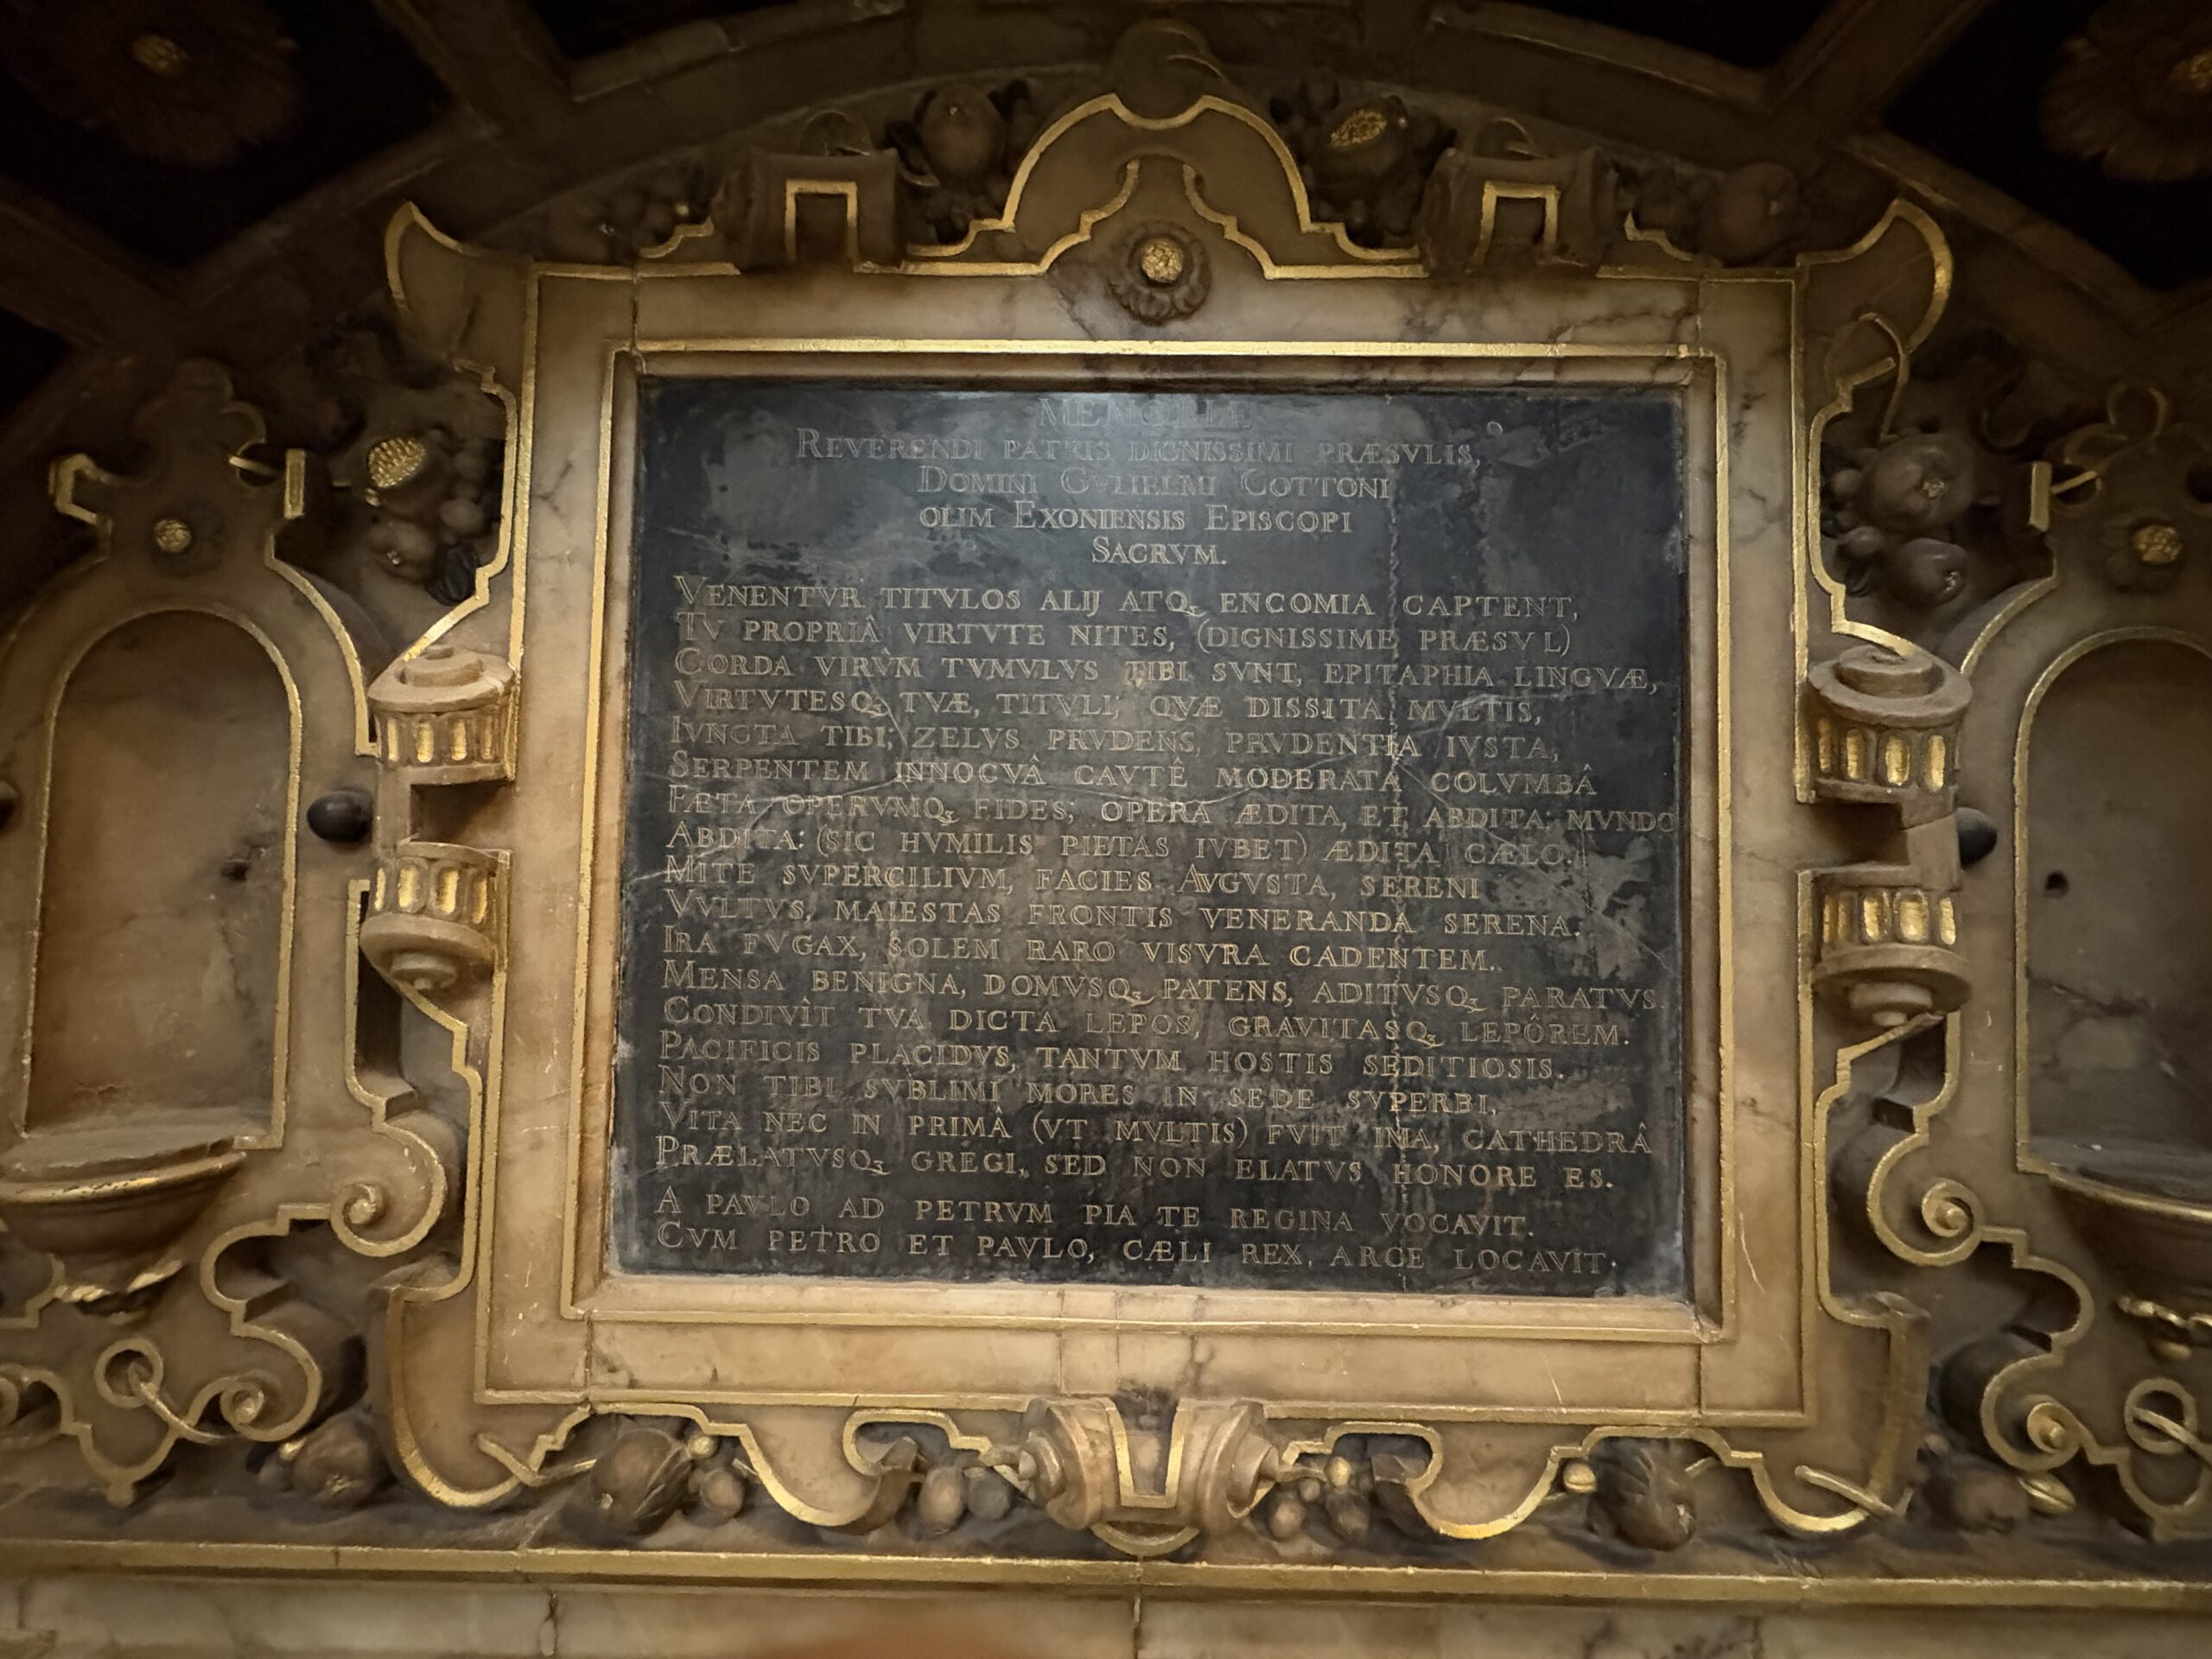 MEMORIÆ
REVERENDI PATRIS DIGNISSIMI PRÆSVLIS,
DOMINI GVLIELMI COTTONI
OLIM EXONIENSIS EPISCOPI
SACRVM.
VENENTVR TITVLOS ALIJ ATQꝫ ENCOMIA CAPTENT,
TV PROPRIÂ VIRTVTE NITES, (DIGNISSIME PRÆSVL)
CORDA VIRÛM TVMVLVS TIBI SVNT, EPITAPHIA LINGVÆ,
VIRTVTESQꝫ TVÆ, TITVLI; QVÆ DISSITA MVLTIS,
IVNCTA TIBI; ZELVS PRVDENS, PRVDENTIA IVSTA,
SERPENTEM INNOCVÂ CAVTÊ MODERATA COLVMBÂ
FÆTA OPERVMQꝫ FIDES; OPERA ÆDITA, ET ABDITA: MVNDO
ABDITA: (SIC HVMILIS PIETAS IVBET) ÆDITA CÆLO.
MITE SVPERCILIVM, FACIES AVGVSTA, SERENI
VVLTVS, MAIESTAS FRONTIS VENERANDA SERENA.
IRA FVGAX, SOLEM RARO VISVRA CADENTEM.
MENSA BENIGNA, DOMVSQꝫ PATENS, ADITVSQꝫ PARATVS.
CONDIVÌT TVA DICTA LEPOS, GRAVITASQꝫ LEPÔREM.
PACIFICIS PLACIDVS, TANTVM HOSTIS SEDITIOSIS.
NON TIBI SVBLIMI MORES IN SEDE SVPERBI,
VITA NEC IN PRIMÂ (VT MVLTIS) FVIT IMA, CATHEDRÂ
PRÆLATVSQꝫ GREGI, SED NON ELATVS HONORE ES.
A PAVLO AD PETRVM PIA TE REGINA VOCAVIT.
CVM PETRO ET PAVLO, CÆLI REX, ARCE LOCAVIT.